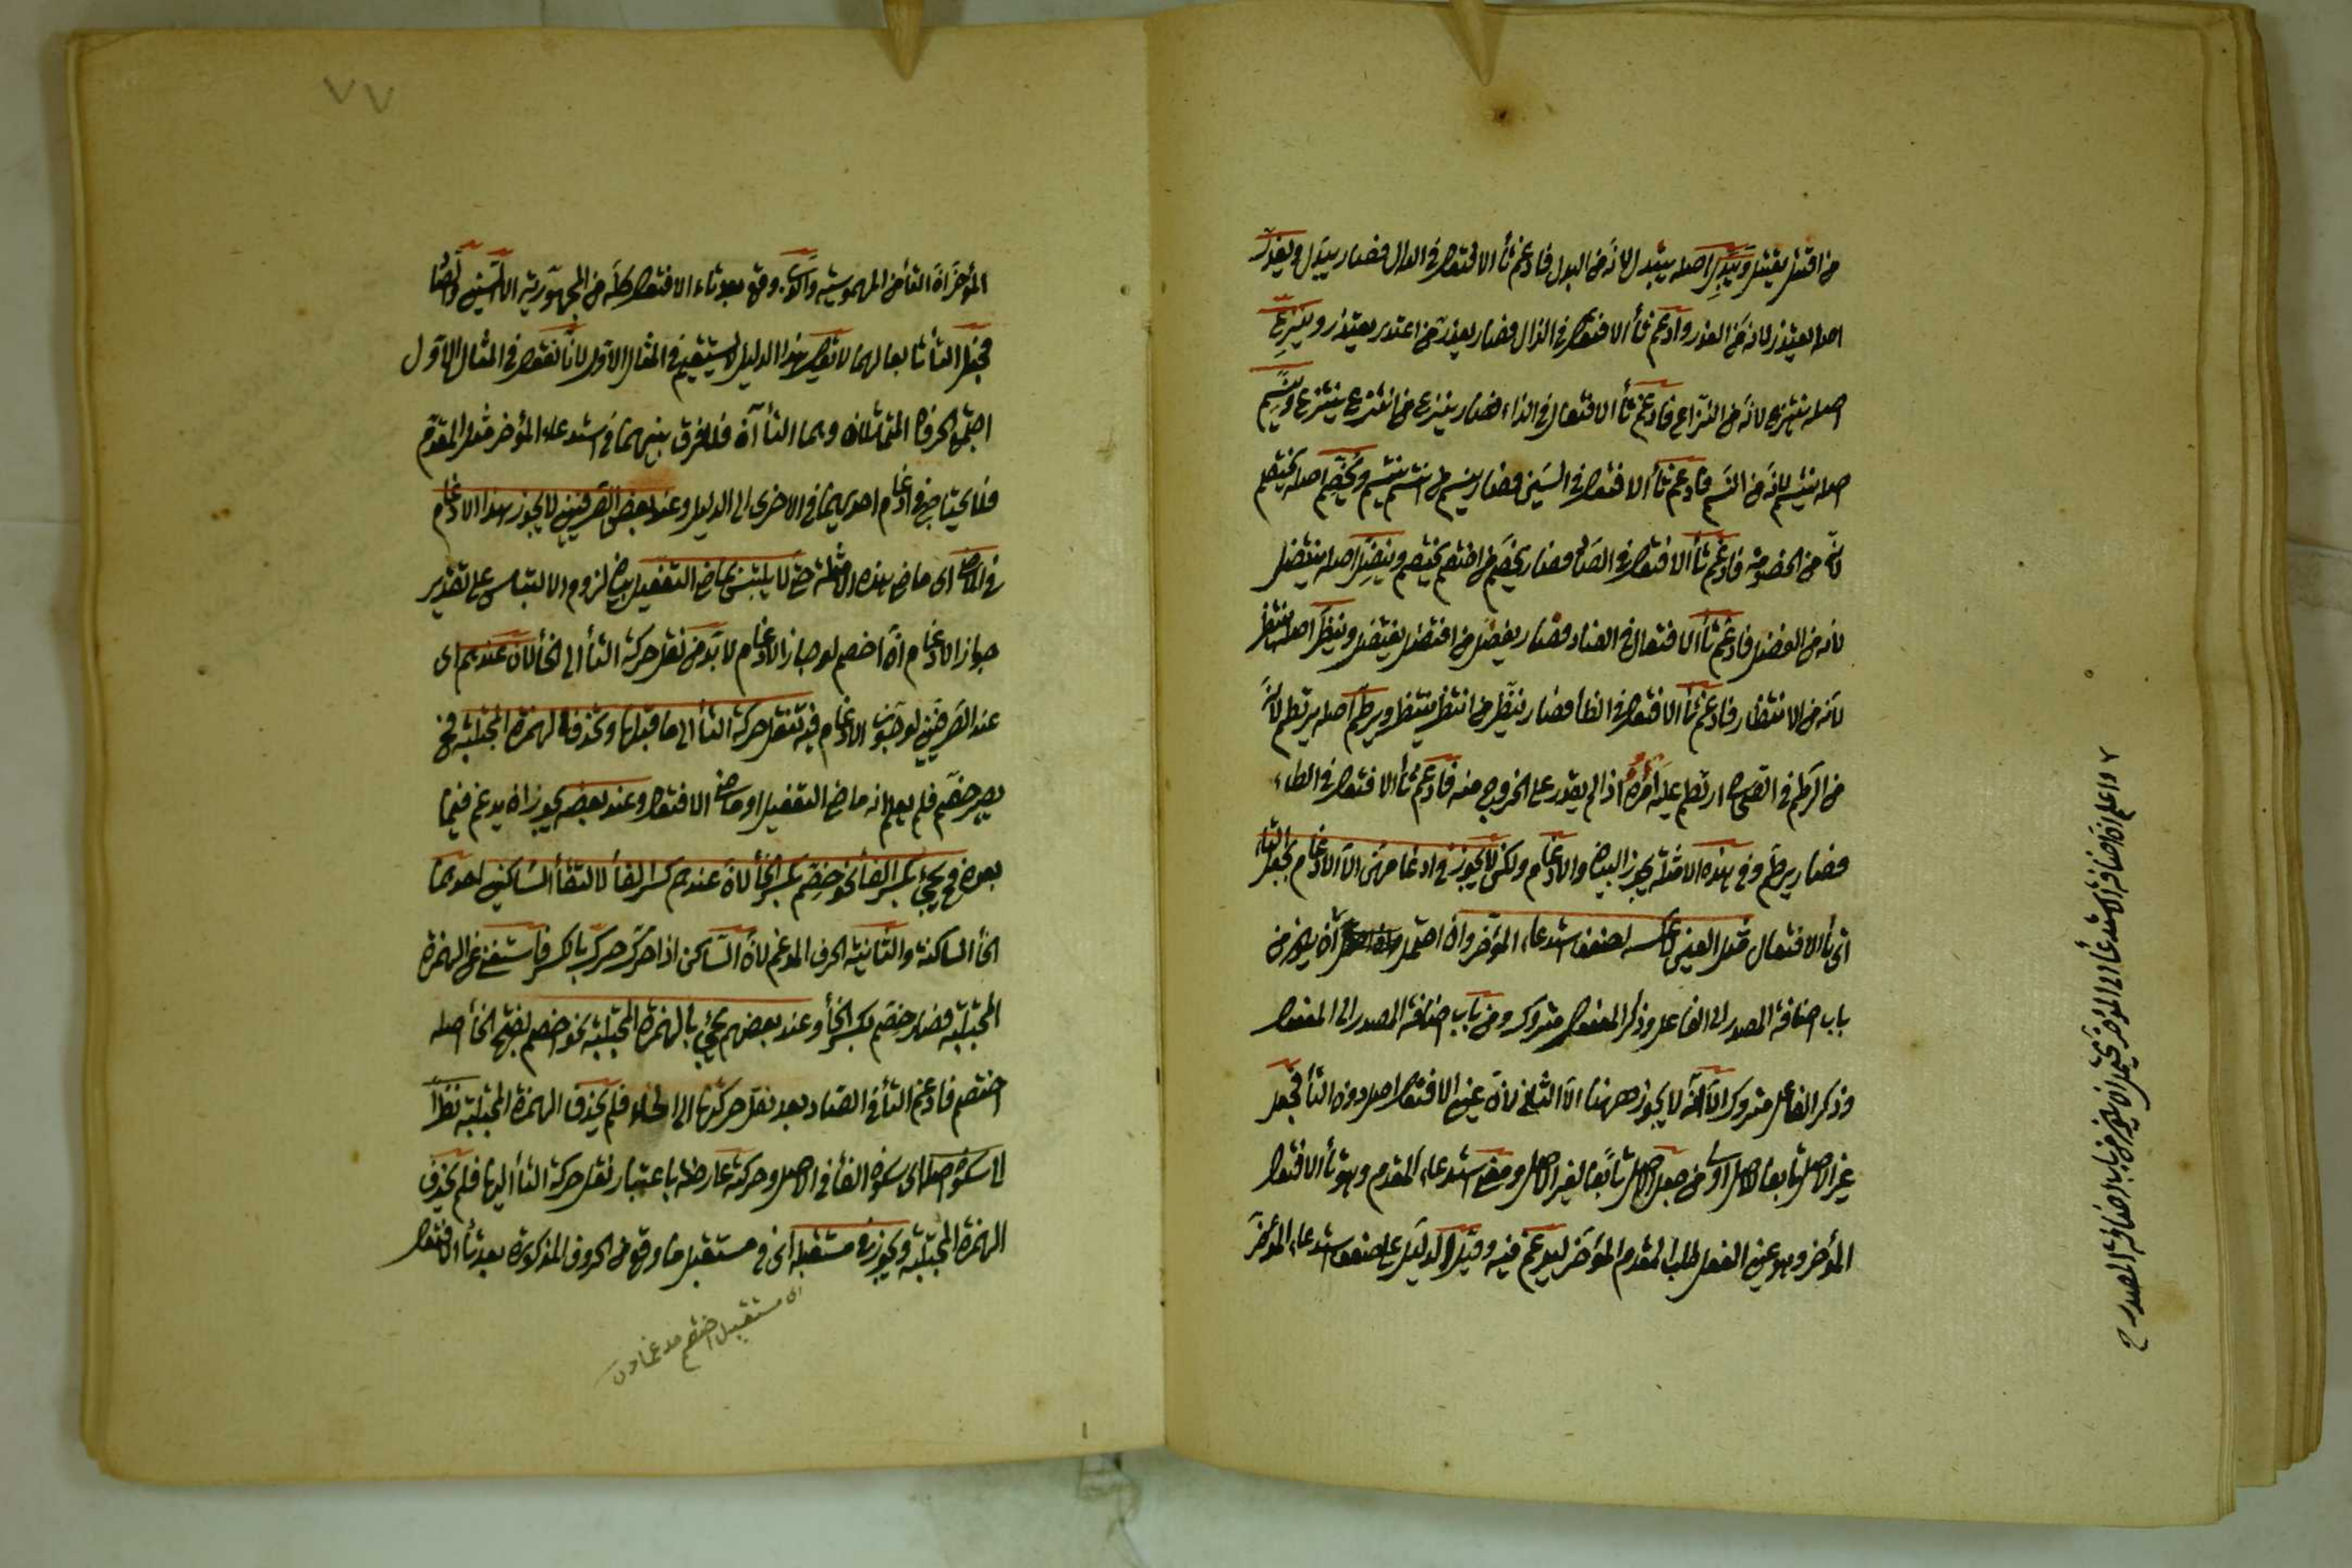 من اقتتل يقتتل ويبدل اصله يبتدل لانه من البدل فادغم تأ الافتعال في الدال فصار يبدل ويعذر
اصله يعتذر لانه من العذر وادغم تأ الافتعال في الذال فصار يعذر من اعتذر يعتذر وينزع
اصله ينتزع لانه من النزاع فادغم تأ الافتعال في الزاء فصار ينزع من انتزع ينتزع ويبسم
اصله يبتسم لانه من البسم فادغم تأ الافتعال في السين فصار يبسم من ابتسم يبتسم ويخصم اصله يختصم
لانه من الخصومة فادغم تأ الافتعال في الصاد فصار يخصم من اختصم يختصم وينضل اصله ينتضل
لانه من الفضل فادغم تأ الافتعال في الضاد فصار يفضل من افتضل يفتضل وينظر اصله ينتظر
لانه من الانتظار فادغم تأ الافتعال في الظأ فصار ينظر من انتظر ينتظر ويرطم اصله يرتطم لانه
من الرطم في الصحاح ارتطم عليه امره اذا لم يقدر على الخروج منه فادغم تأ الافتعال في الطاء
فصار يرطم وفي هذه الامثلة يجوز البيان والادغام ولكن لا يجوز في ادغامهن الا الادغام بجعل التاء
اي تأ الافتعال مثل العين لا عكسه لضعف استدعاء المؤخر وان احتمل ان يكون من
باب اضافة المصدر الى الفاعل وذكر المفعول متروك ومن باب اضافة المصدر الى المفعول
وذكر الفاعل متروك الا انه لا يجوز ههنا الا الثاني لان عين الافتعال اصل دون التأ فجعل
غير الاصل تابعا للاصل اولى من جعل الاصل تابعا لغير الاصل ومعنى استدعاء المقدم وهو تأ الافتعال
المؤخر وهو عين الفعل طلب المقدم المؤخر ليدغم فيه وقيل الدليل على ضعف استدعاء المؤخر
واعلم ان اضافة الاستدعأ الى المؤخر يحتمل ان يكون من باب اضافة المصدر ح
٧٧
المؤخر ان التأ من المهموسة والذي وقع بعد تاء الافتعال كله من المجهورية الا السين والصاد
فجعل التأ تابعا لهما لا يقال هذا الدليل لا يستقيم في المثال الاول لانا نقول في المثال الاول
اجتمع الحرفان المتماثلان وهما التاآن فلا فرق بينهما في استدعاء المؤخر مثل المقدم
فلا يحتاج في ادغام احديهما في الاخرى الى الدليل وعند بعض الصرفيين لا يجوز هذا الادغام
في الماضي اي ماضي هذه الامثلة حتى لا يلتبس بماضي التفعيل بيان لزوم الالتباس على تقدير
جواز الادغام ان اختصم لو جاز الادغام لا بد من نقل حركة التأ الى الخأ لان عندهم اي
عند الصرفيين لوجوب الادغام فيه تنقل حركة التأ الى ما قبلها وتحذف الهمزة المجتلبة فح
يصير خصم فلم يعلم انه ماضي التفعيل او ماضي الافتعال وعند بعضهم يجوز ان يدغم فيما
بعده فح يجئ بكسر الفأ نحو خصم بكسر الخأ لان عندهم كسر الفأ لالتقأ الساكنين احدهما
الخأ الساكنة والثانية الحرف المدغم لان الساكن اذا حرك حرك بالكسر فاستغنى عن الهمزة
المجتلبة فصار خصم بكسر الخأ وعند بعضهم يجئ بالهمزة المجتلبة نحو اخصم بفتح الخأ اصله
اختصم فادغم التأ في الصاد بعد نقل حركتها الى الخاء فلم يحذف الهمزة المجتلبة نظرا
الى سكون اصله اي سكون الفأ في الاصل وحركته عارضة باعتبار نقل حركة التأ اليها فلم يحذف
الهمزة المجتلبة ويجوز في مستقبله اي في مستقبل ما وقع من الحروف المذكورة بعد تأ الافتعال
اى مستقبل اختصم مدغما